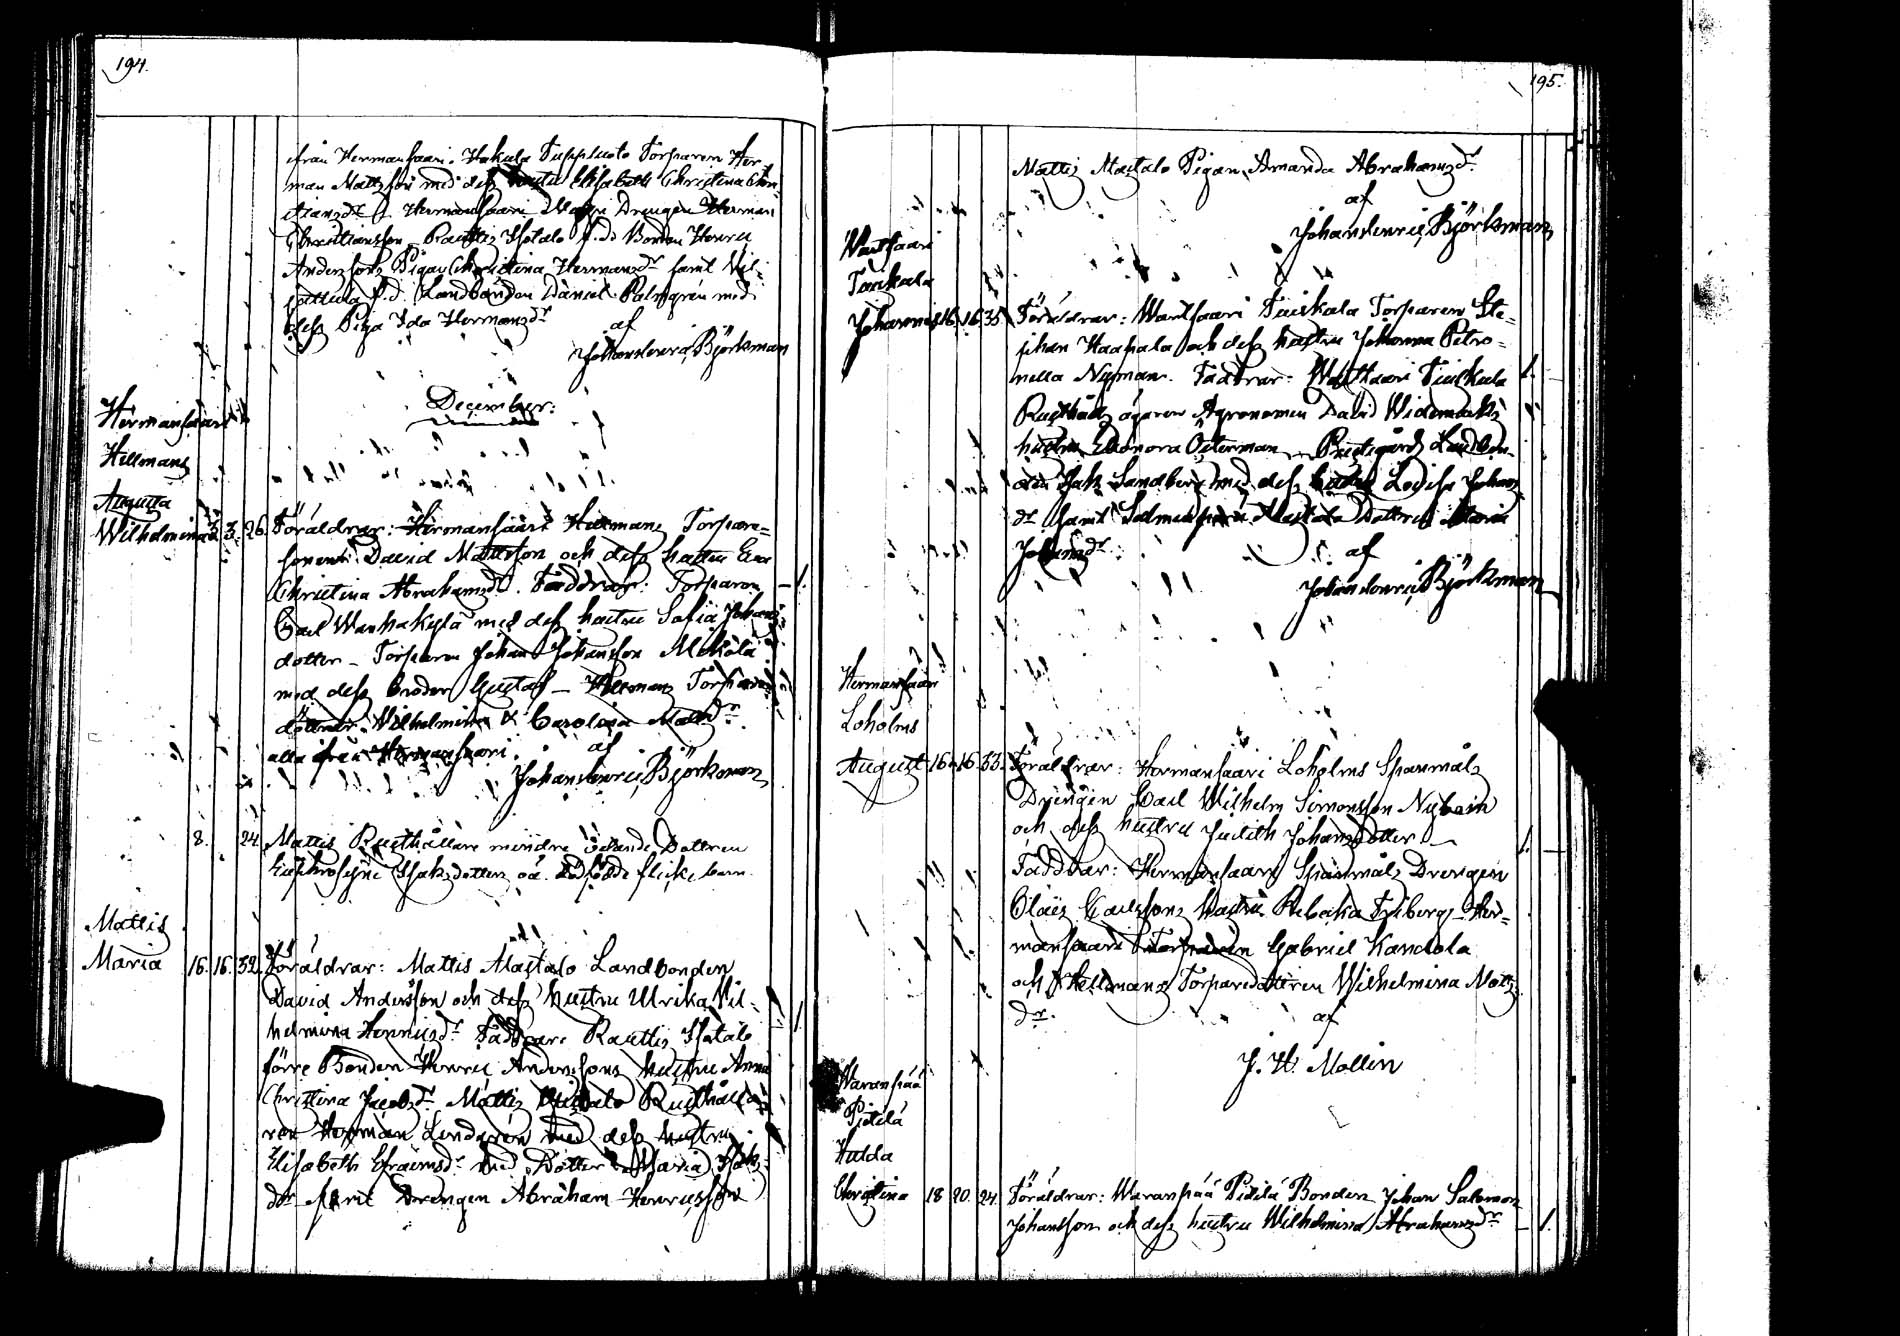 194.
från Hermansaari. Hakula Tuppluoto Torparen Her
man Mattsson med dess hustru Elisabeth Christina Chris
tiansdr Hermansaari Drengen Herman
Christiansson Rautlis Isotalo f.d. Bonden Henric
Anderssons Pigan Christina Hermansdr samt Vil
f.d. Landbonden Daniel Palmgrén med
dess Piga Ida Hermansdr
af
Johan Henric Björkman
December:
Hermansaari
Hellmans
Augusta
Wilhelmina 3. 3. 26. Föräldrar: Hermansaari Hellmans Torpare-
sonen David Mattsson och dess hustru Eva
Christina Abrahamsdr. Faddrar: Torparen
Carl Wanhakylä med dess hustru Sofia Johans
dotter – Torparen Johan Johansson Mekola
med dess broder Gustaf – Hellmans Torpare
döttrar Wilhelmina & Carolina Mattsdr
alla från Hermansaari.
af
Johan Henric Björkman
8. 24. Mattis Rusthållare mindre vetande Dottren
Euphrosyne Isaksdotters oä. dödfödde flickebarn.
Mattis
Maria 16. 16. 32. Föräldrar: Mattis Alastalo Landbonden
David Andersson och dess hustru Ulrika Vil-
helmina Henricsdr Faddrar: Rautlis Isotalo
förre Bonden Henric Anderssons hustru Anna
Christina Jacobsdr Mattis Rusthålla
ren Herman Lindgrén med dess hustru
Elisabeth Efraimsdr med Dotter Maria Isaks
dr samt Drengen Abraham Henricsson
195.
Mattis Alastalo Pigan Amanda Abrahamsdr
af
Johan Henric Björkman
Wartsaari
Tuukala
Johannes 16. 16. 35. Föräldrar: Wartsaari Tuukala Torparen Ste-
phan Haapala och dess hustru Johanna Petro-
nella Nyman. Faddrar: Wartsaari Tuukala
Rusthålls ägaren Agronomen David Widemarks
hustru Eleonora Österman – Prestgårds Landbon-
den Isak Sandberg med dess hustru Lovisa Johans
dr samt Alastalo Dottren Maria
Johansdr
af
Johan Henric Björkman
Hermansaari
Loholms
August 16. 16. 33. Föräldrar: Hermansaari Loholms Spanmåls
Drengen Carl Wilhelm Simonsson Nybom
och dess hustru Judith Johansdotter –
Faddrar: Hermansaari Spanmåls Drengen
Claës Carlssons hustru Rebecka Friberg – Her-
mansaari Torparen Gabriel Kandola
och Hellmans Torparedottren Wilhelmina Matts
dr.
af
J. H. Mollin
Waranpää
Pidilä
Hulda
Christina 18 20. 24. Föräldrar: Waranpää Pidilä Bonden Johan Salomon
Johansson och dess hustru Wilhelmina Abrahamsdr – 1.